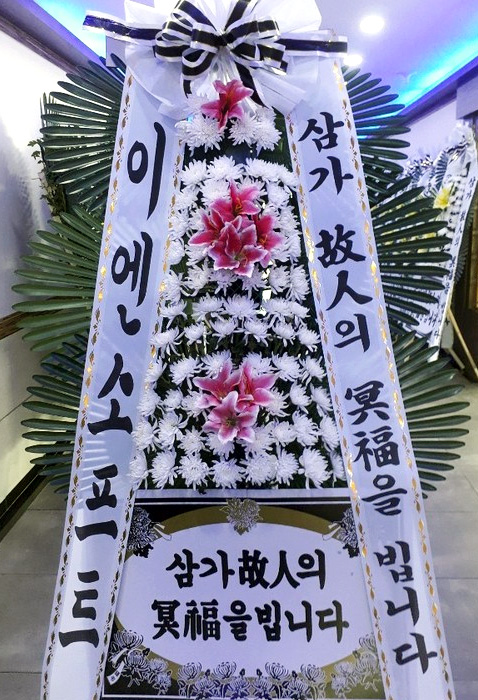 이엔소프트
삼가 故人의 冥福을 빕니다
삼가故人의
冥福을빕니다